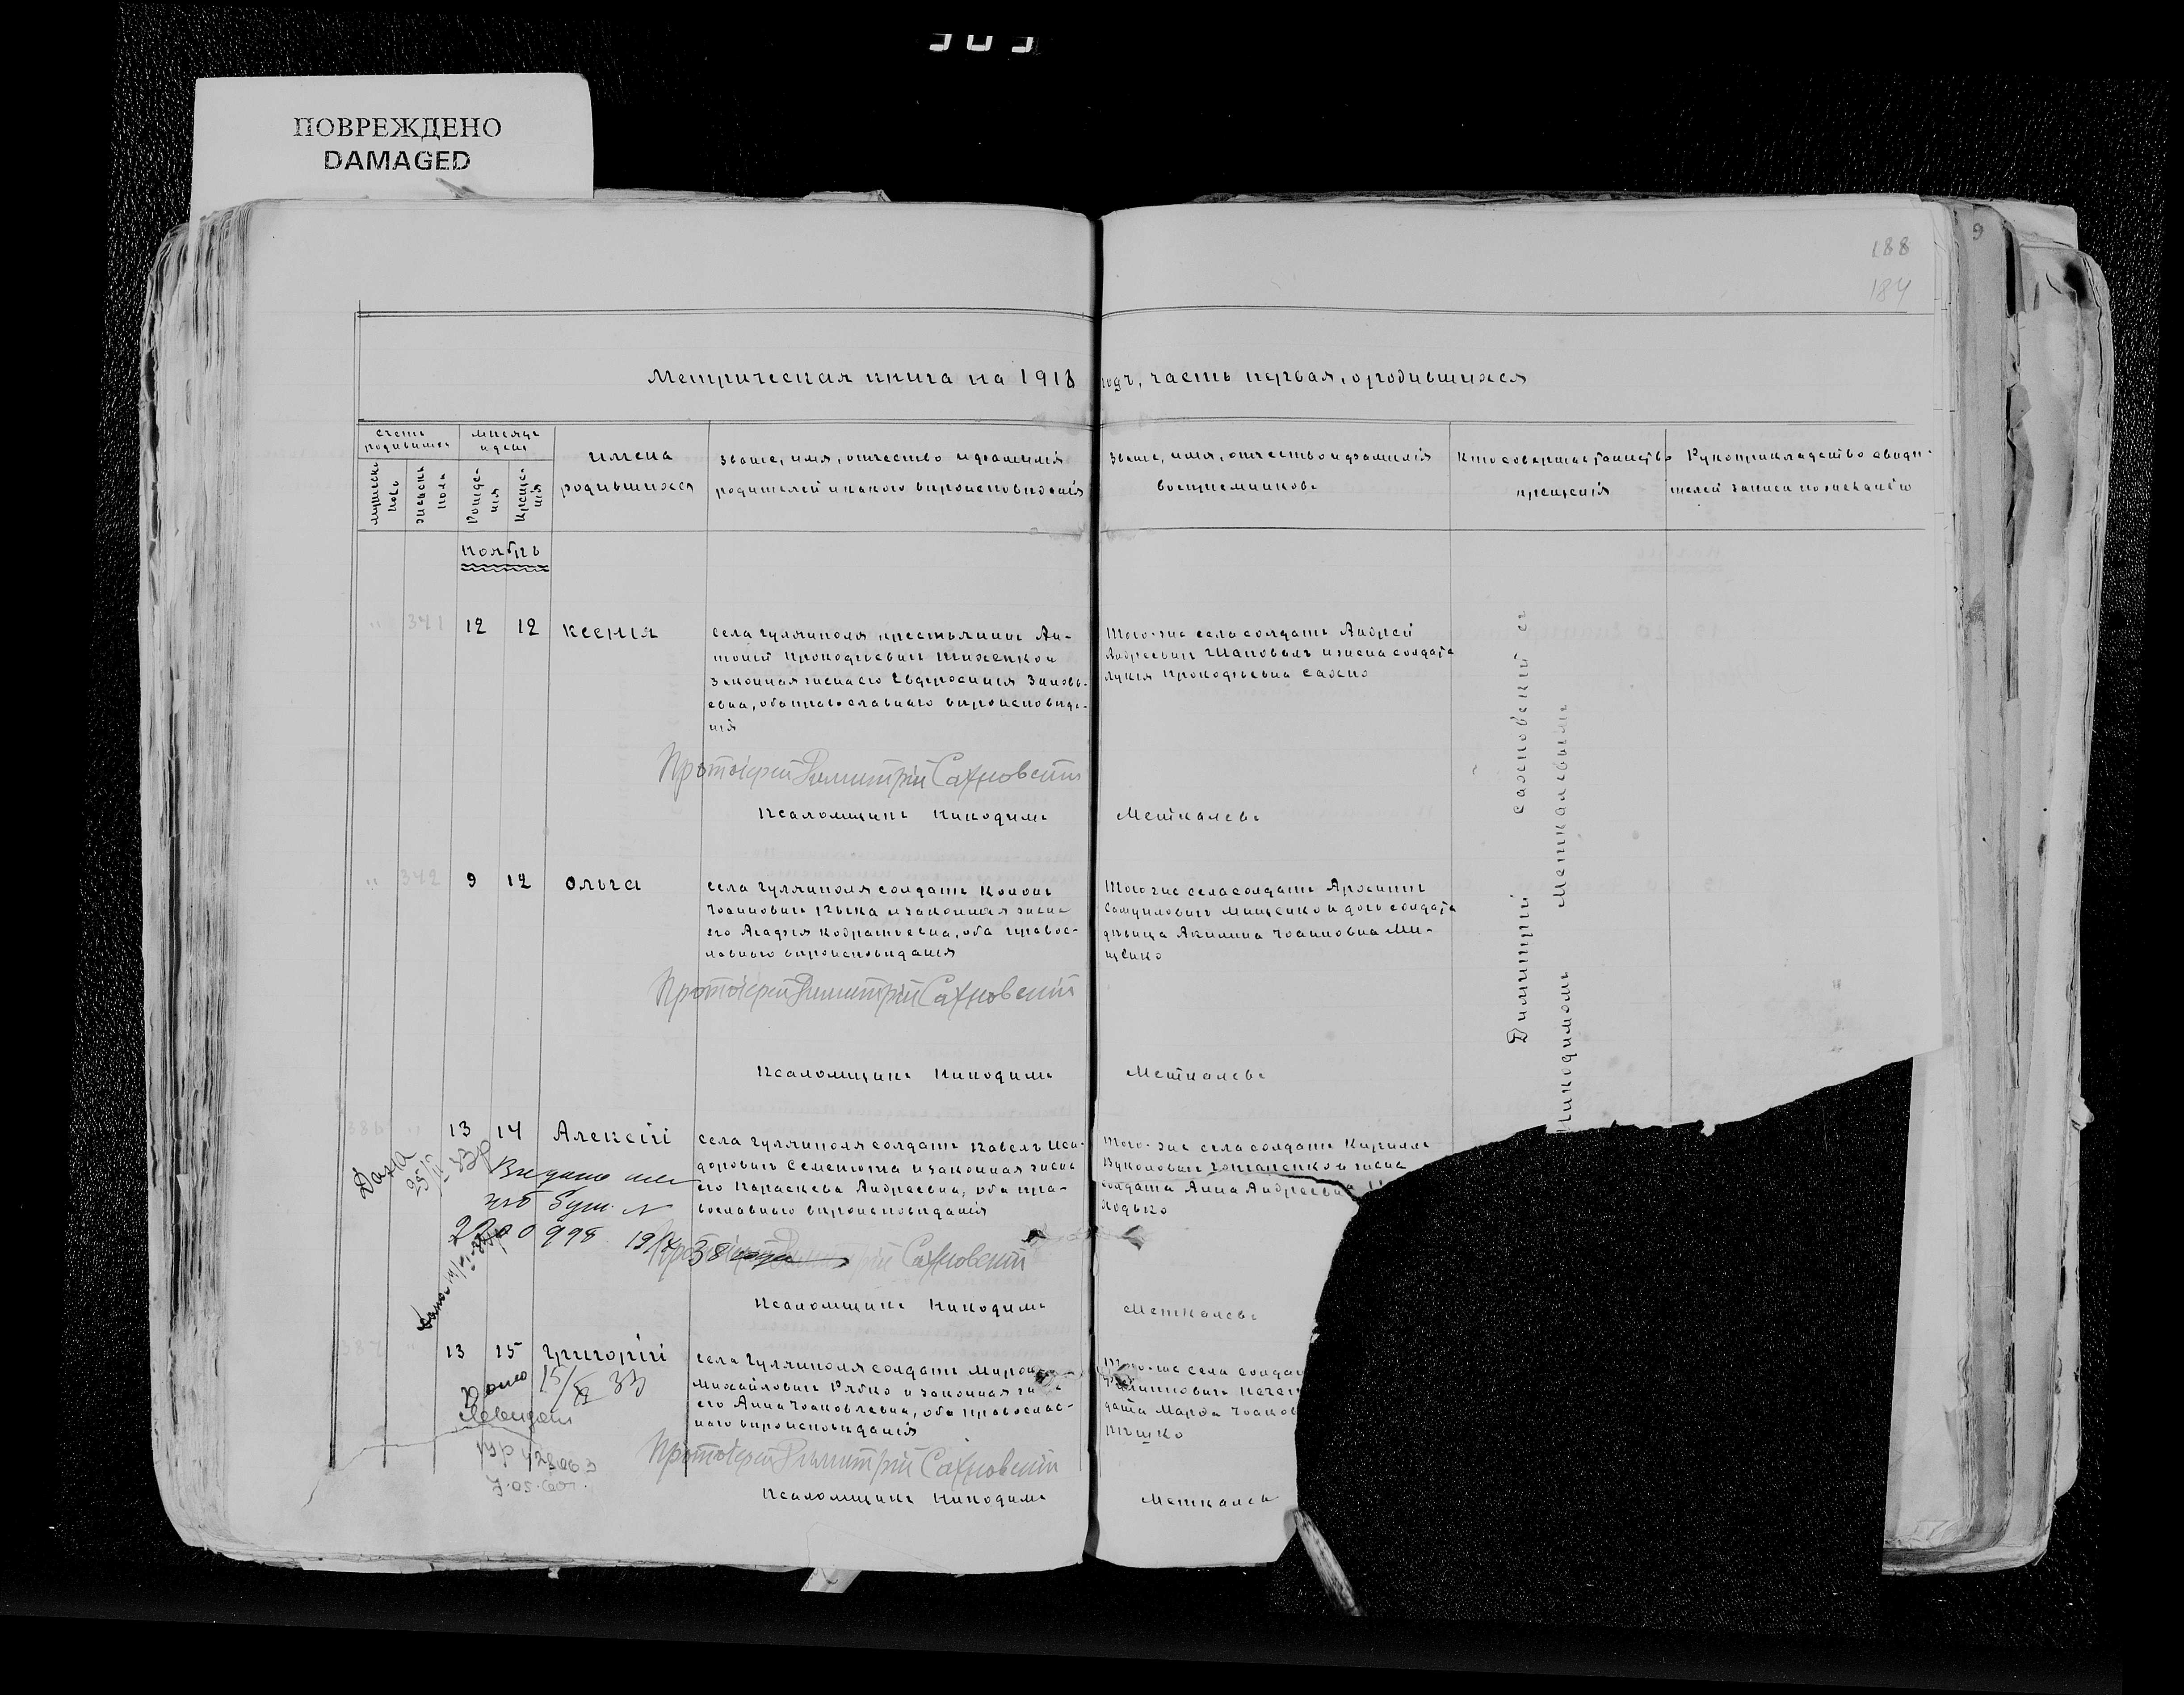 ПОВРЕЖДЕНО
DAMAGED
188
184
Метрическая книга на 1918 годъ, часть первая, о родившихся
счетъ родившихся
мѣсяцъ и день
мужеска пола
женска пола
Рожде-
нія
Креще-
нія
имена
родившихся
Званіе, имя, отчество и фамилія
родителей и какого вѣроисповѣданія
Званіе, имя, отчество и фамилія
воспріемниковъ
Кто совершал таинство
крещенія
Рукоприкладство свидѣ-
телей записи по желанію
ноябрь
341 12 12 Ксенія
села Гуляиполя крестьянинъ Ан-
тоній Прокофіевичъ Тихенко и
законная жена его Евфросинія Зиновь-
евна, оба православнаго вѣроисповѣда-
нія
Того-же села солдатъ Андрей
Андреевичъ Шаповалъ и жена солдата
Лукія Прокофіевна Сахно
Протоіерей Димитрій Сахновскій
Псаломщикъ Никодимъ Меткалевъ
342 9 12 Ольга
села Гуляиполя солдатъ Кононъ
Іоанновичъ и законная жена
его Агафія Кодратоевна, оба правос-
лавнаго вѣроисповѣданія
Того же села солдатъ
Самуиловичъ Мищенко и дочь солдата
дѣвица Акилина Іоанновна Ми-
щенко
Протоіерей Димитрій Сахновскій
Псаломщикъ Никодимъ Меткалевъ
Димитрій Сахновскій съ
Никодимомъ Меткалевымъ
386 13 14 Алексій
села Гуляиполя солдатъ Павелъ Иси-
доровичъ Семенюта и законная жена
его Параскева Андреевна, оба пра-
вославнаго вѣроисповѣданія
Того-же села солдатъ Кириллъ
Вуколовичъ и жена
солдата Анна Андреевна
Ходько
Выдано
998
Протоіерей Димитрій Сахновскій
Псаломщикъ Никодимъ Меткалевъ
387 13 15 Григорій
села Гуляиполя солдатъ Миронъ
Михайловичъ Рябко и законная жена
его Анна Іоаковлевна, оба православ-
наго вѣроисповѣданія
Того-же села солдат
дата Марфа
15/XI 33
7.05.60г.
Протоіерей Димитрій Сахновскій
Псаломщикъ Никодимъ Меткалевъ